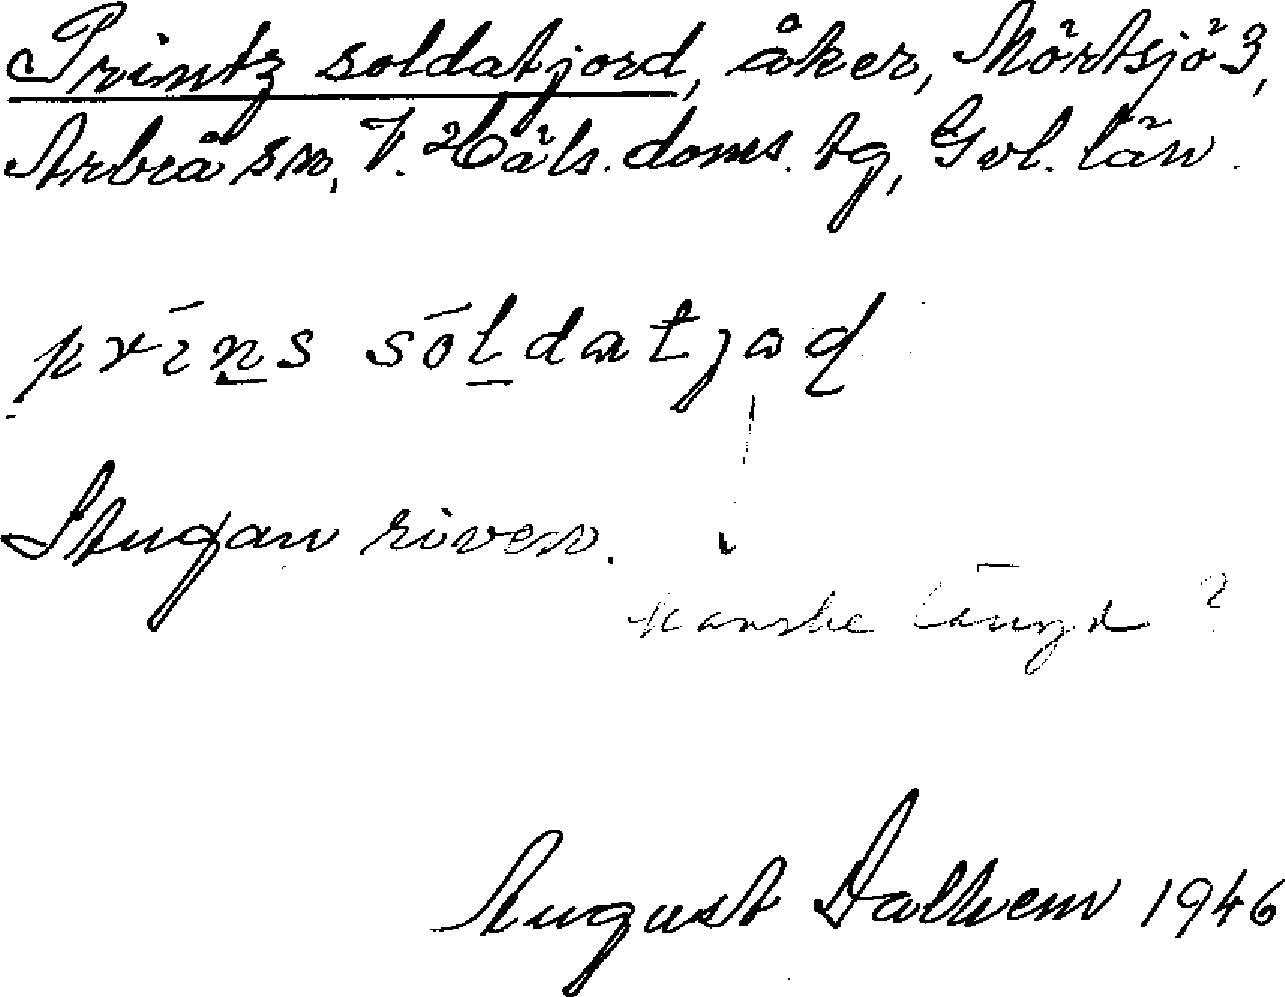 Printz soldatjord, åker, Mörtsjö 3,
Arbrå sn, V. Häls. doms. tg, Gvl. län.
prīn̲s sōl̲datjaɖ
Stugan riven.
kanske längd?
August Dalhem 1946